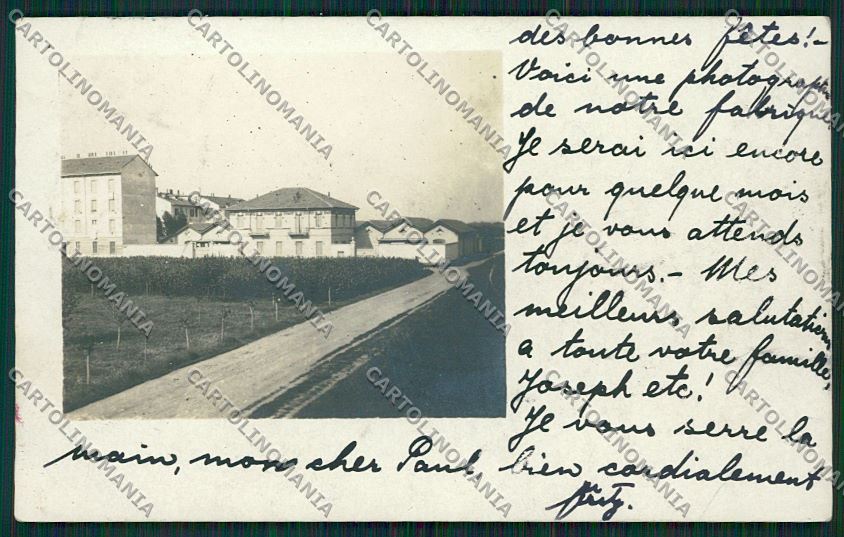 des bonnes fêtes! -
Voici une photographie
de notre fabrique
Je serai ici encore
pour quelque mois
et je vous attends
toujours. - Mes
meilleurs salutations
a toute votre famille,
Joseph etc!
Je vous serre la
main, mon cher Paul, bien cordialement
Fritz.
CARTOLINOMANIA